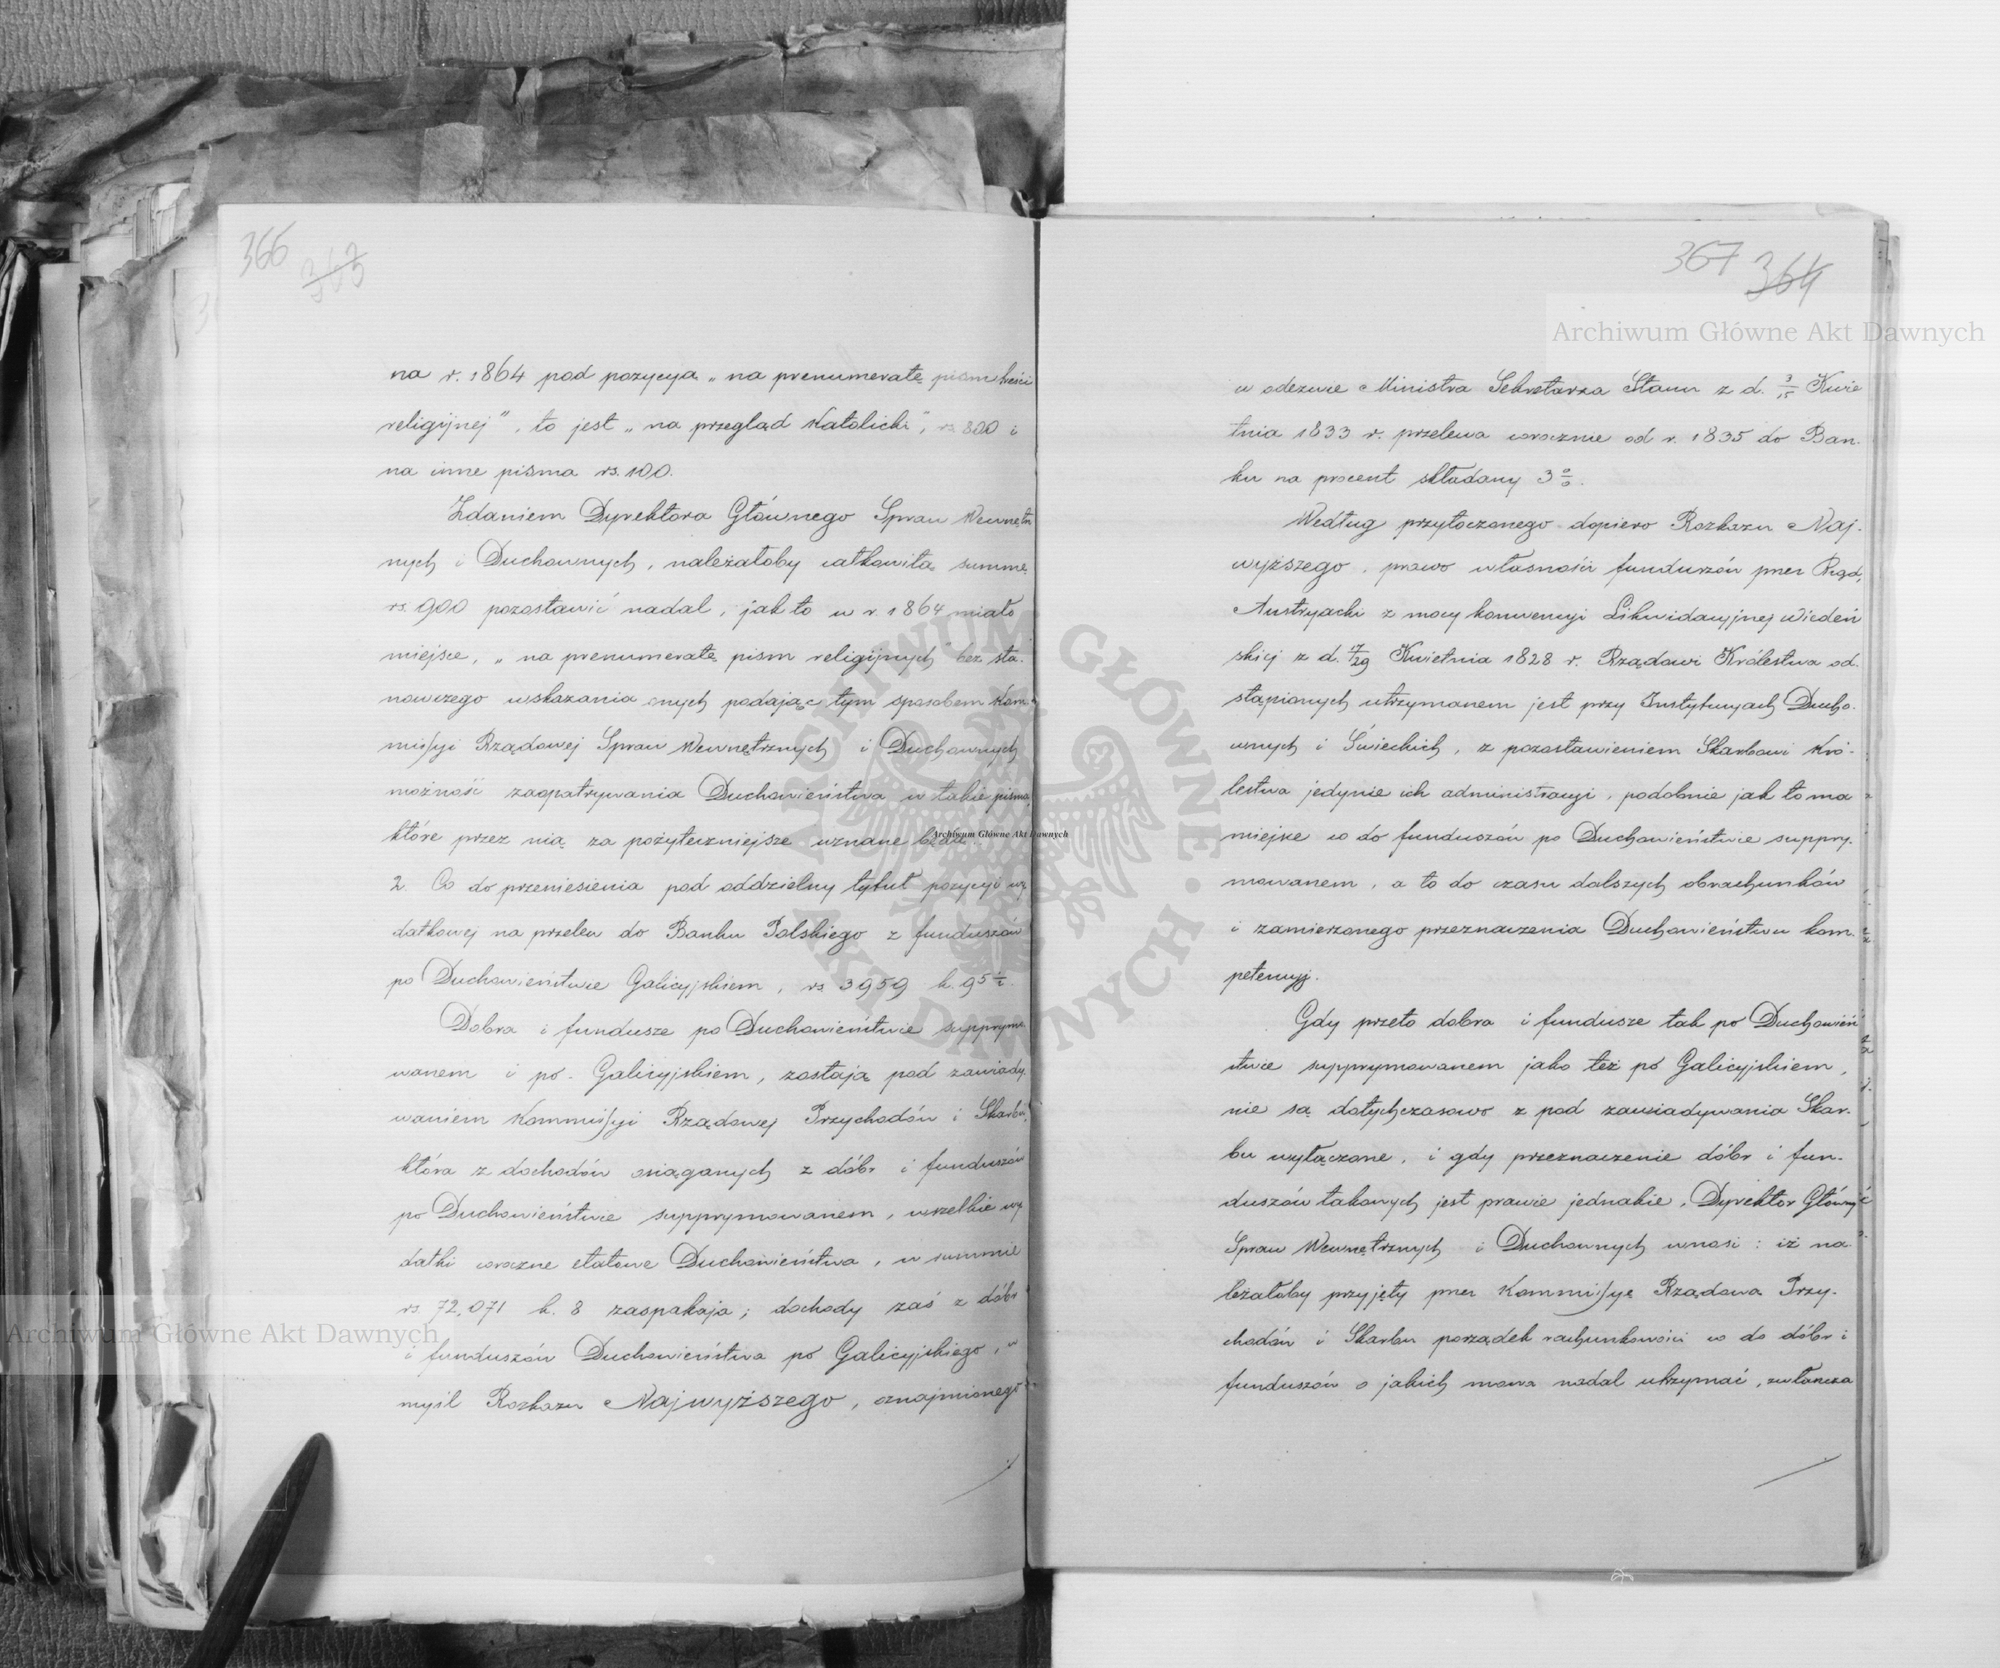 366 363
na r. 1864 pod pozycyą „na prenumeratę pism treści
religijnej", to jest „na przegląd Katolicki", rs 800 i
na inne pisma rs. 100.
Zdaniem Dyrektora Głównego Spraw Wewnętrz
nych i Duchownych, należałoby całkowitą summę
rs. 900 pozostawić nadal, jak to w r. 1864 miało
miejsce, „na prenumeratę pism religijnych" bez sta-
nowczego wskazania onych podając tym sposobem Kom-
missyi Rządowej Spraw Wewnętrznych i Duchownych
możność zaopatrywania Duchowieństwa w takie pisma,
które przez nią za pożyteczniejsze uznane będą.
2. Co do przeniesienia pod oddzielny tytuł pozycyi wy
datkowej na przelew do Banku Polskiego z funduszów
po Duchowieństwie Galicyjskiem, rs 3959 k. 95 ½.
Dobra i fundusze po Duchowieństwie supprymo
wanem i po-Galicyjskiem, zostają pod zawiady-
waniem Kommissyi Rządowej Przychodów i Skarbu,
która z dochodów osiąganych z dóbr i funduszów
po Duchowieństwie supprymowanem, wszelkie wy
datki coroczne etatowe Duchowieństwa, w summie
rs. 72,071 k. 8 zaspakaja; dochody zaś z dóbr
i funduszów Duchowieństwa po Galicyjskiego, w
myśl Rozkazu Najwyższego, oznajmionego
367 364
w odezwie Ministra Sekretarza Stanu z d. 3/15 Kwie
tnia 1833 r. przelewa corocznie od r. 1835 do Ban-
ku na procent składany 3 %.
Według przytoczonego dopiero Rozkazu Naj-
wyższego, prawo własności funduszów przez Rząd
Austryacki z mocy konwencyi Likwidacyjnej Wiedeń
skiej z d. 29 Kwietnia 1828 r. Rządowi Królestwa od-
stąpionych utrzymanem jest przy Instytucyach Ducho-
wnych i Świeckich, z pozostawieniem Skarbowi Kró-
lestwa jedynie ich administracyi, podobnie jak to ma
miejsce co do funduszów po Duchowieństwie suppry-
mowanem, a to do czasu dalszych obrachunków
i zamierzonego przeznaczenia Duchowieństwu kom-
petencyj.
Gdy przeto dobra i fundusze tak po Duchowień
stwie supprymowanem jako też po Galicyjskiem,
nie są dotychczasowo z pod zawiadywania Skar-
bu wyłączone, i gdy przeznaczenie dóbr i fun-
duszów takowych jest prawie jednakie, Dyrektor Główny
Spraw Wewnętrznych i Duchownych wnosi: iż na-
leżałoby przyjęty przez Kommissyę Rządową Przy-
chodów i Skarbu porządek rachunkowości co do dóbr i
funduszów o jakich mowa nadal utrzymać, zwłaszcza
Archiwum Główne Akt Dawnych
Archiwum Główne Akt Dawnych
Archiwum Główne Akt Dawnych
ARCHIWUM GŁÓWNE AKT DAWNYCH